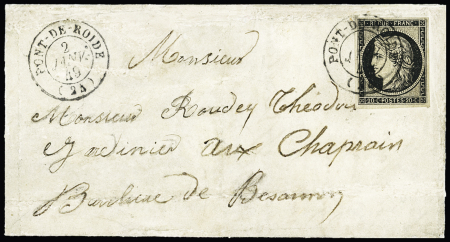 PONT-DE-ROIDE
2
JANV.
49
(24)
PONT-DE-
2
REPUB. FRANC.
20 C POSTES 20 C
Monsieur
Monsieur Roudey Théodore
Jardinier aux Chaprais
Banlieue de Besançon